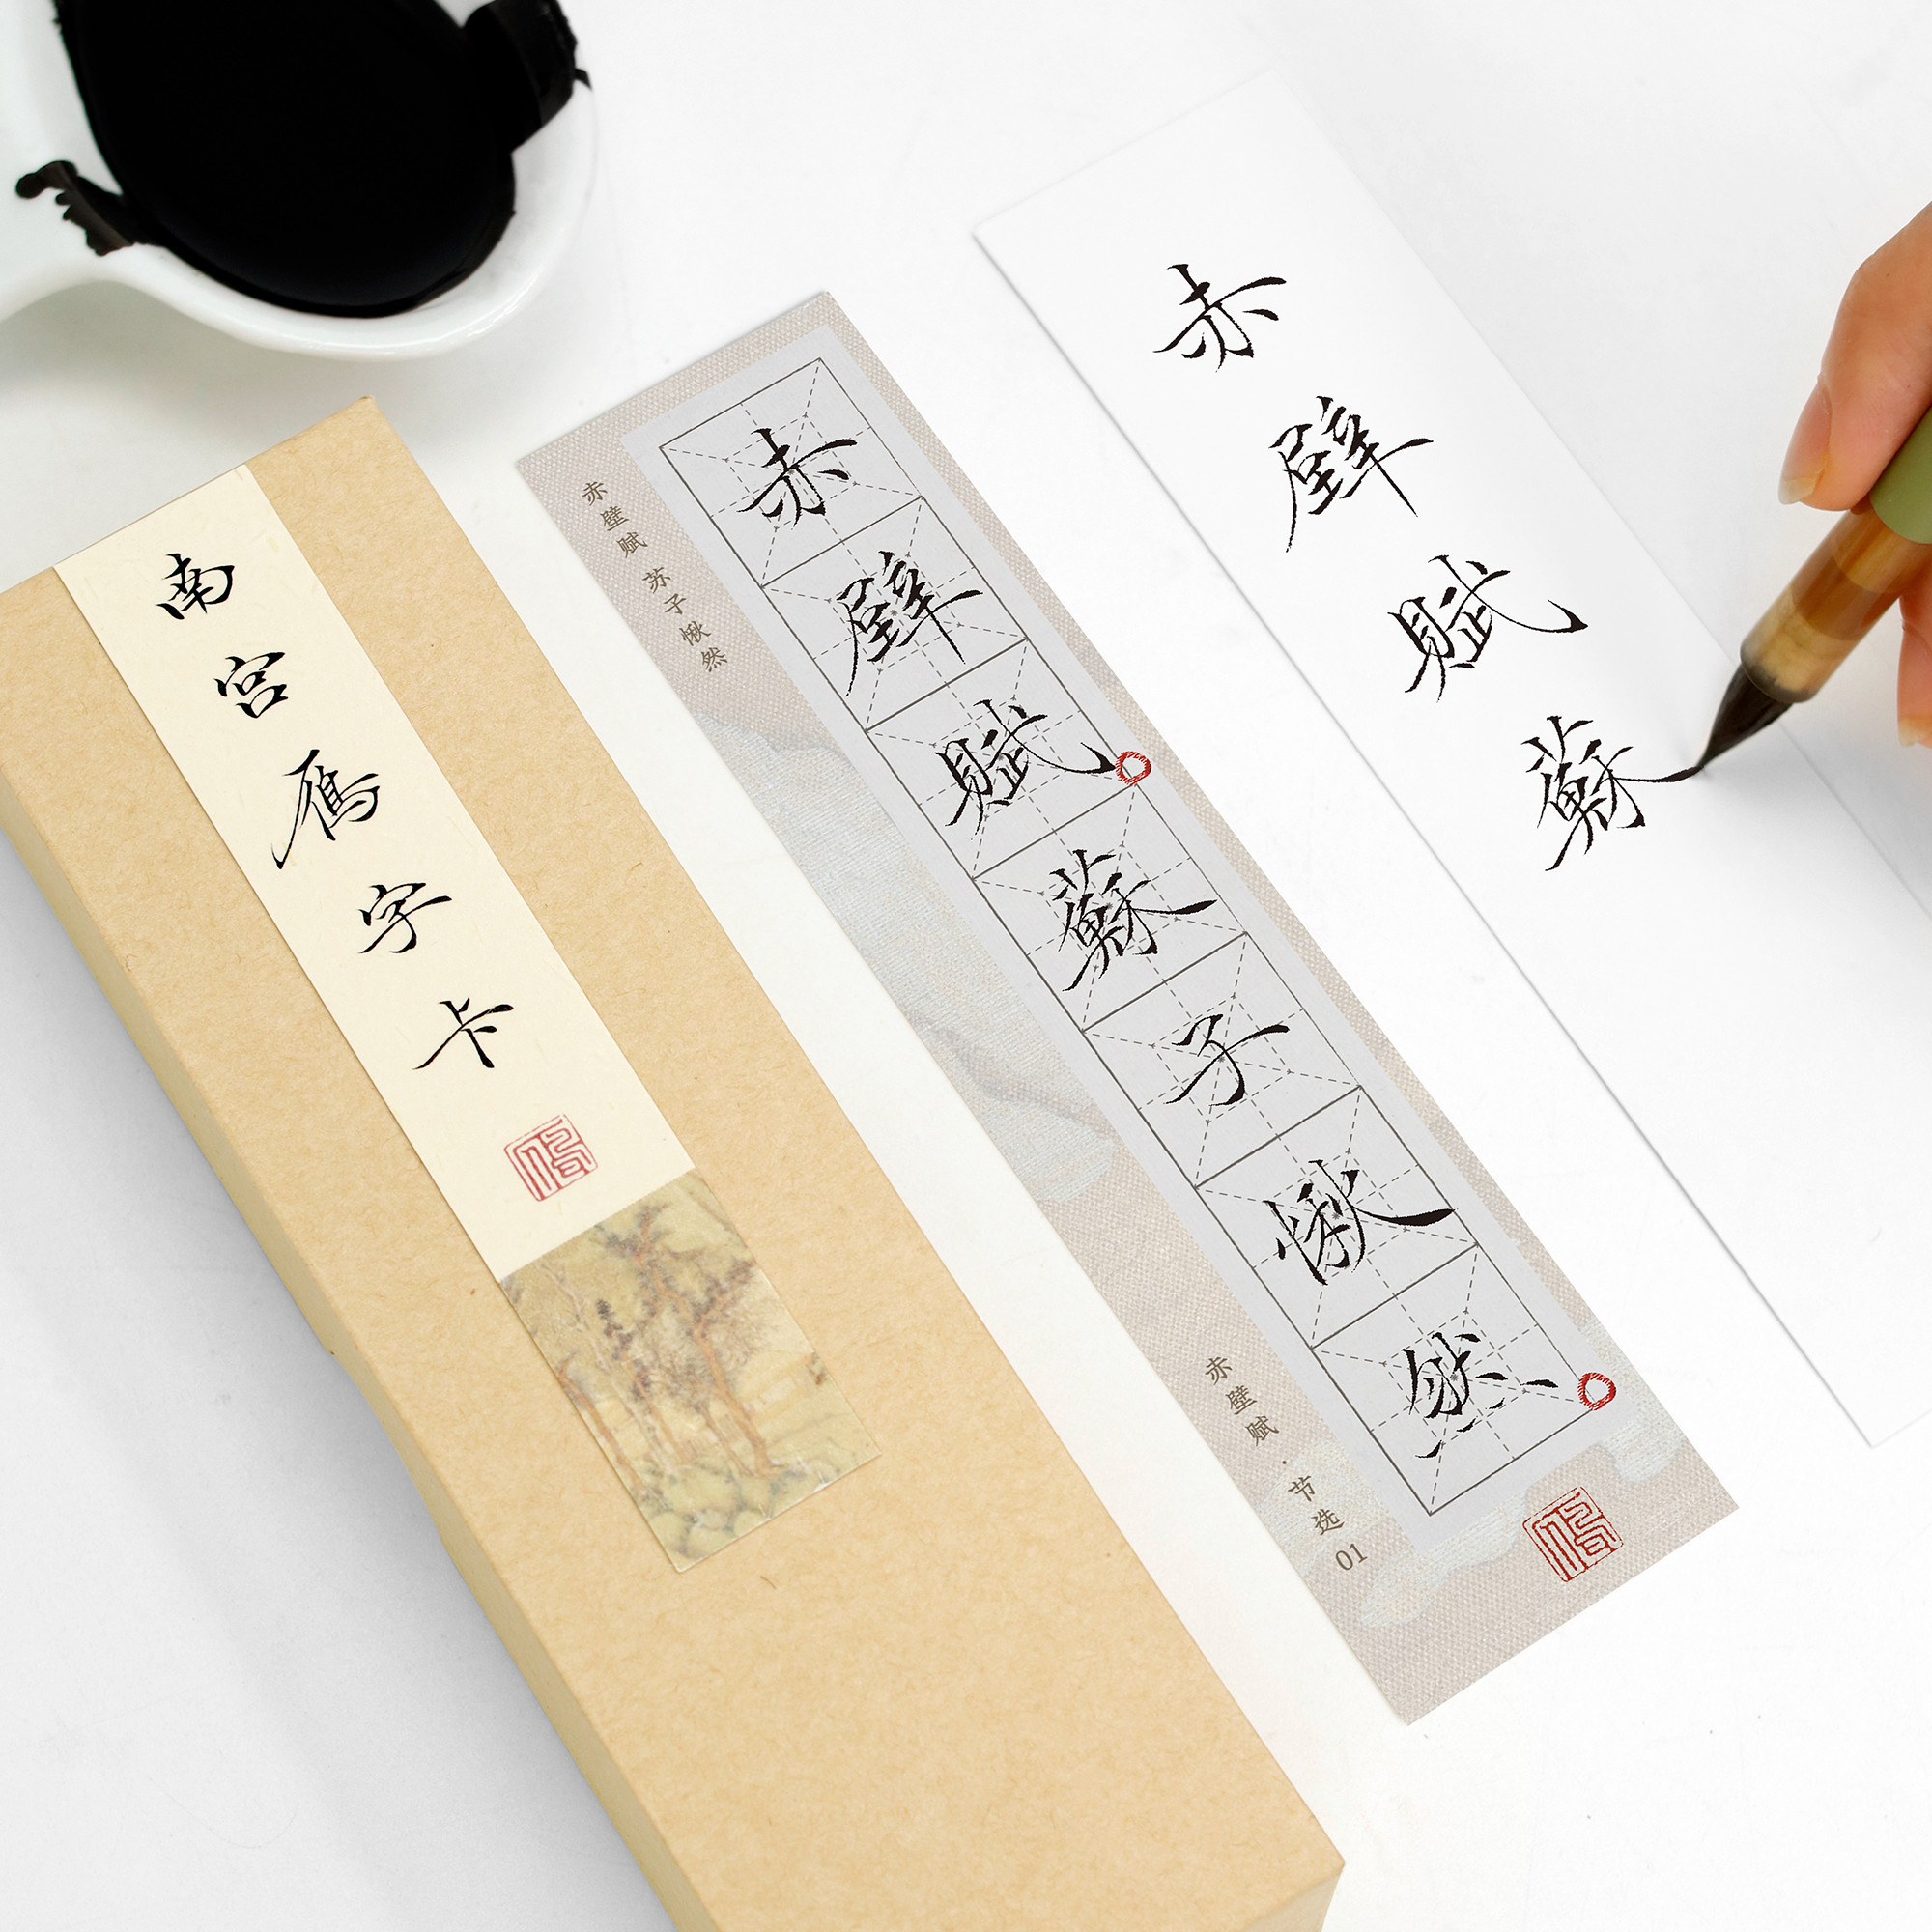 南宫雁字卡
赤壁赋 苏子愀然
赤壁賦蘇子愀然
赤壁赋·节选01
赤壁賦蘇